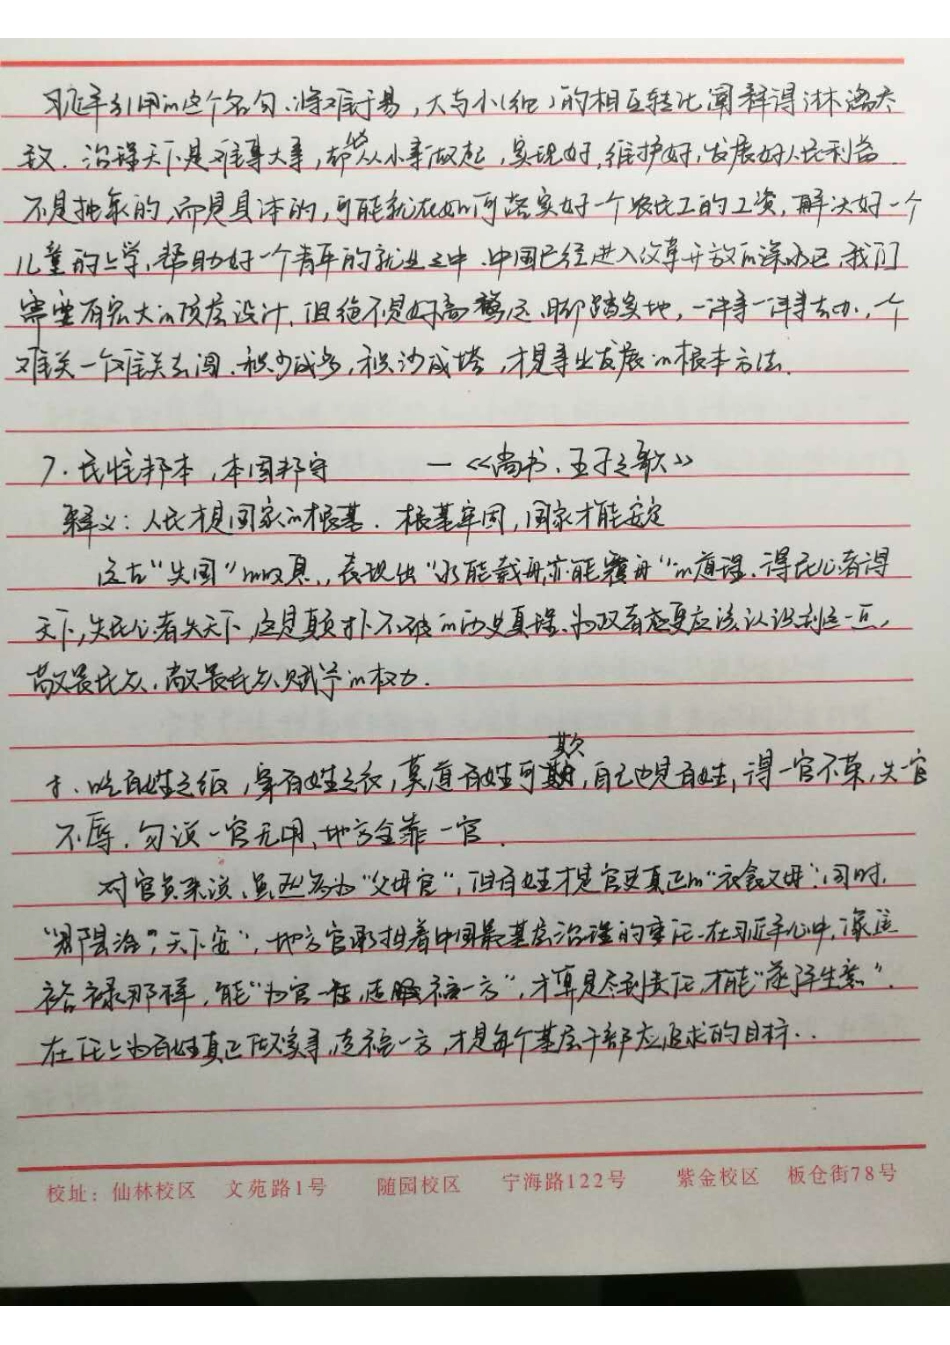 习近平引用的这个名句、将难于易，大与小（细）的相互转化阐释得淋漓尽
致．治理天下是难事大事，都必从小事做起，实现好，维护好，发展好人民利益
不是抽象的，而是具体的，可能就在如何落实好一个农民工的工资，解决好一个
儿童的上学，帮助好一个青年的就业之中．中国已经进入改革开放的深水区，我们
需要有宏大的顶层设计、但绝不是好高骛远、脚踏实地，一件事一件事去办，一个
难关一个难关去闯．积少成多，积沙成塔，才是事业发展的根本方法．
7．民惟邦本，本固邦宁 —《尚书．五子之歌》
释义：人民才是国家的根基．根基牢固，国家才能安定
这古“失国”的，，表现出“水能载舟，亦能覆舟”的道理、得民心者得
天下，失民心者失天下，这是颠扑不破的历史真理、为政者应该认识到这一点，
敬畏民众，敬畏民众赋予的权力．
十．吃百姓之饭，穿百姓之衣，莫道百姓可欺，自己也是百姓，得一官不荣，失一官
不辱．勿说一官无用，地方全靠一官．
对官员来说、虽然名为“父母官”，但百姓才是官吏真正的“衣食父母”；同时，
“郡县治，天下安”，地方官承担着中国最基层治理的重任．在习近平心中，像焦
裕禄那样，能“为官一任，造福一方”，才算是尽到责任，才能“遂了平生意”．
在任上为百姓真正做实事，造福一方，才是每个基层干部应追求的目标．．
校址：仙林校区 文苑路1号 随园校区 宁海路122号 紫金校区 板仓街78号